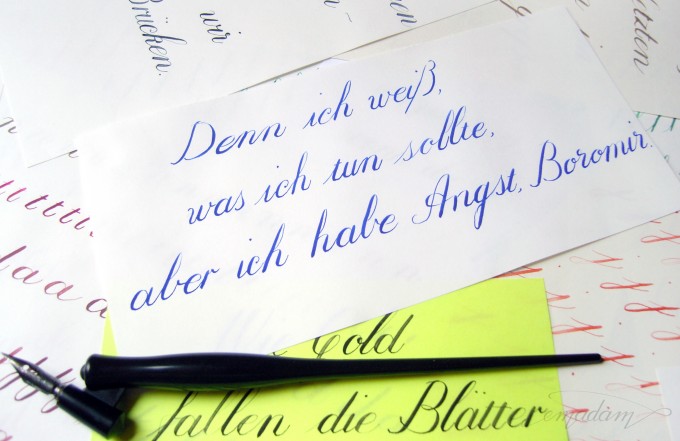 Brücken.
wir
Denn ich weiß,
was ich tun sollte,
aber ich habe Angst, Boromir.
Gold
fallen die Blätter
madam